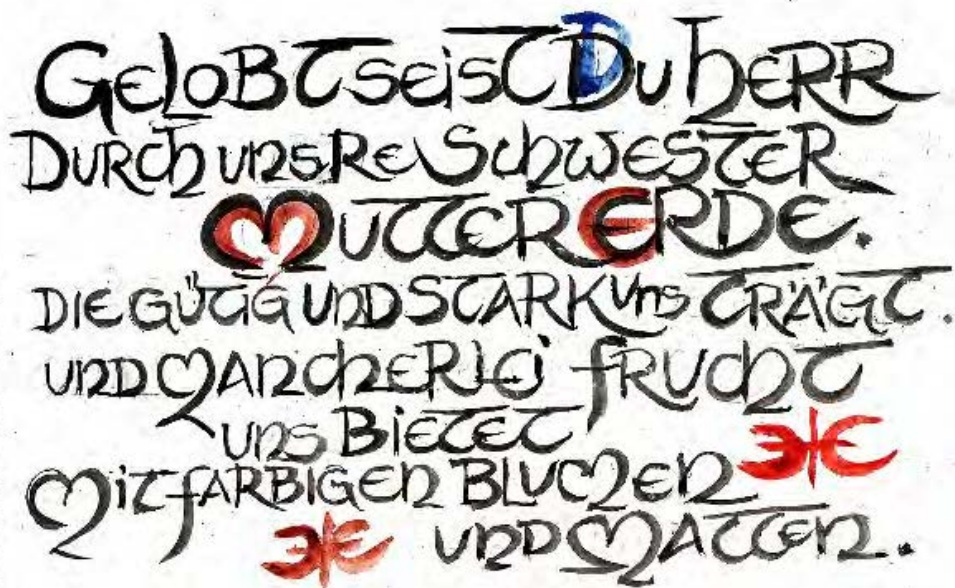 GELOBT SEIST DU HERR
DURCH UNSRE SCHWESTER
MUTTER ERDE.
DIE GÜTIG UND STARK UNS TRÄGT.
UND MANCHERLEI FRUCHT
UNS BIETET
MIT FARBIGEN BLUMEN
UND MATTEN.